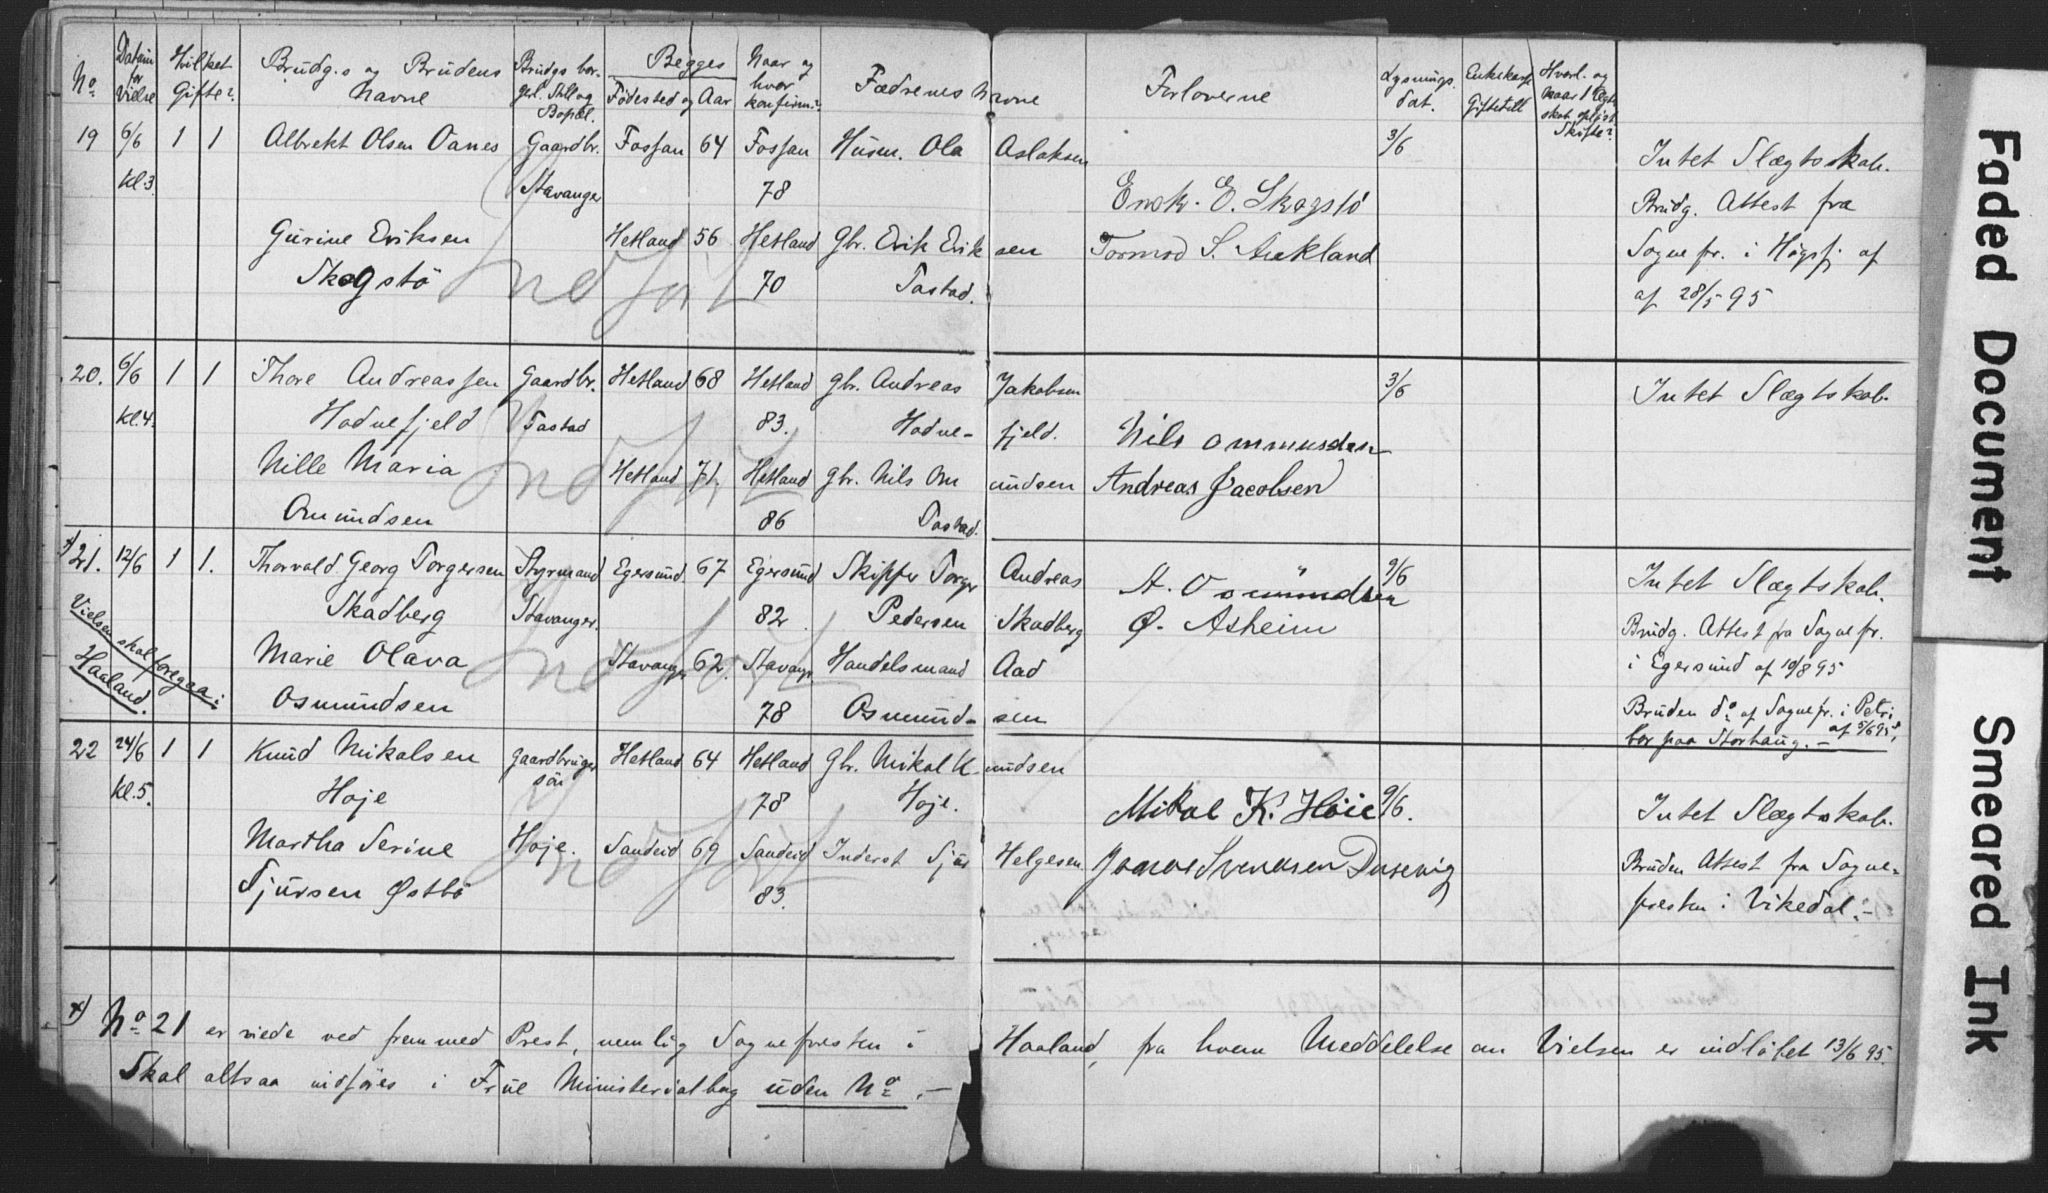 No Datum for Vielse Hvilket Gifte? Brudg.s og Brudens Navne Brudgs bor. gerl. Still og Bopæl. Begges Fødested og Aar Naar og hvor konfirm? Fædrenes Navne Forloverne Lysnings dat. Giftetill Hvorl. og naar Skifte?
19 6/6 1 1 Albrekt Olsen Oanes Gaardbr. Fossan 64 Fossan Husm. Ola Aslaksen 3/6 Intet Slægtskab.
Kl 3. Stavanger 78 Enok. E. Skogstø Brudg. Attest fra
Gurine Eriksen Hetland 56 Hetland Gbr. Erik Eriksen Tormod S. Aukland Sognepr. i Høgsfj af
Skogstø 70 Tastad. af 28/5 95
Indført
20. 6/6 1 1 Thore Andreassen Gaardbr. Hetland 68 Hetland gbr. Andreas Jakobsen 3/6 Intet Slægtskab.
Kl.4. Hodnefjeld Tastad 83. Hodne- fjeld. Nils ommundsen
Nille Maria Hetland 71. Hetland gbr. Nils Om undsen Andreas Jacobsen
Omundsen 86 Tastad.
Indført
x) 21. 12/6 1 1. Thorvald Georg Torgersen Styrmand Egersund 67 Egersund Skipper Torger Andreas A. Osmundsen 9/6 Intet Slægtskab.
Skadberg Stavanger. 82 Pedersen Skadberg Ø. Asheim Brudg. Attest fra Sognepr.
Vielsen skal foregaa i Haaland.
Marie Olava Stavanger 62. Stavanger Handelsmand Aad i Egersund af 10/8 95
Osmundsen 78 Osmund- sen Bruden do af Sognepr. i Petri af 5/6 95,
bor paa Storhaug. –
Indført
22 24/6 1 1 Knud Mikalsen Gaardbruger søn Hetland 64 Hetland Gbr. Mikal K- nudsen
Kl.5. Hoje 78 Hoje. Mikal K. Høie 9/6. Intet Slægtskab.
Martha Serine Hoje. Sandeid 69 Sandeid Inderst Tjør Helgesen Jonas Svendsen Dusevig Bruden Attest fra Sogne-
Tjursen Østbø 83. presten i Vikedal. –
Indført
x) No 21 er viede ved fremmed Prest, nemlig Sognepresten i Haaland, fra hvem Meddelelse om Vielsen er indløbet 13/6 95.
Skal altsaa indføres i Frue Ministerialbog uden No. –
Faded Document
Smeared Ink